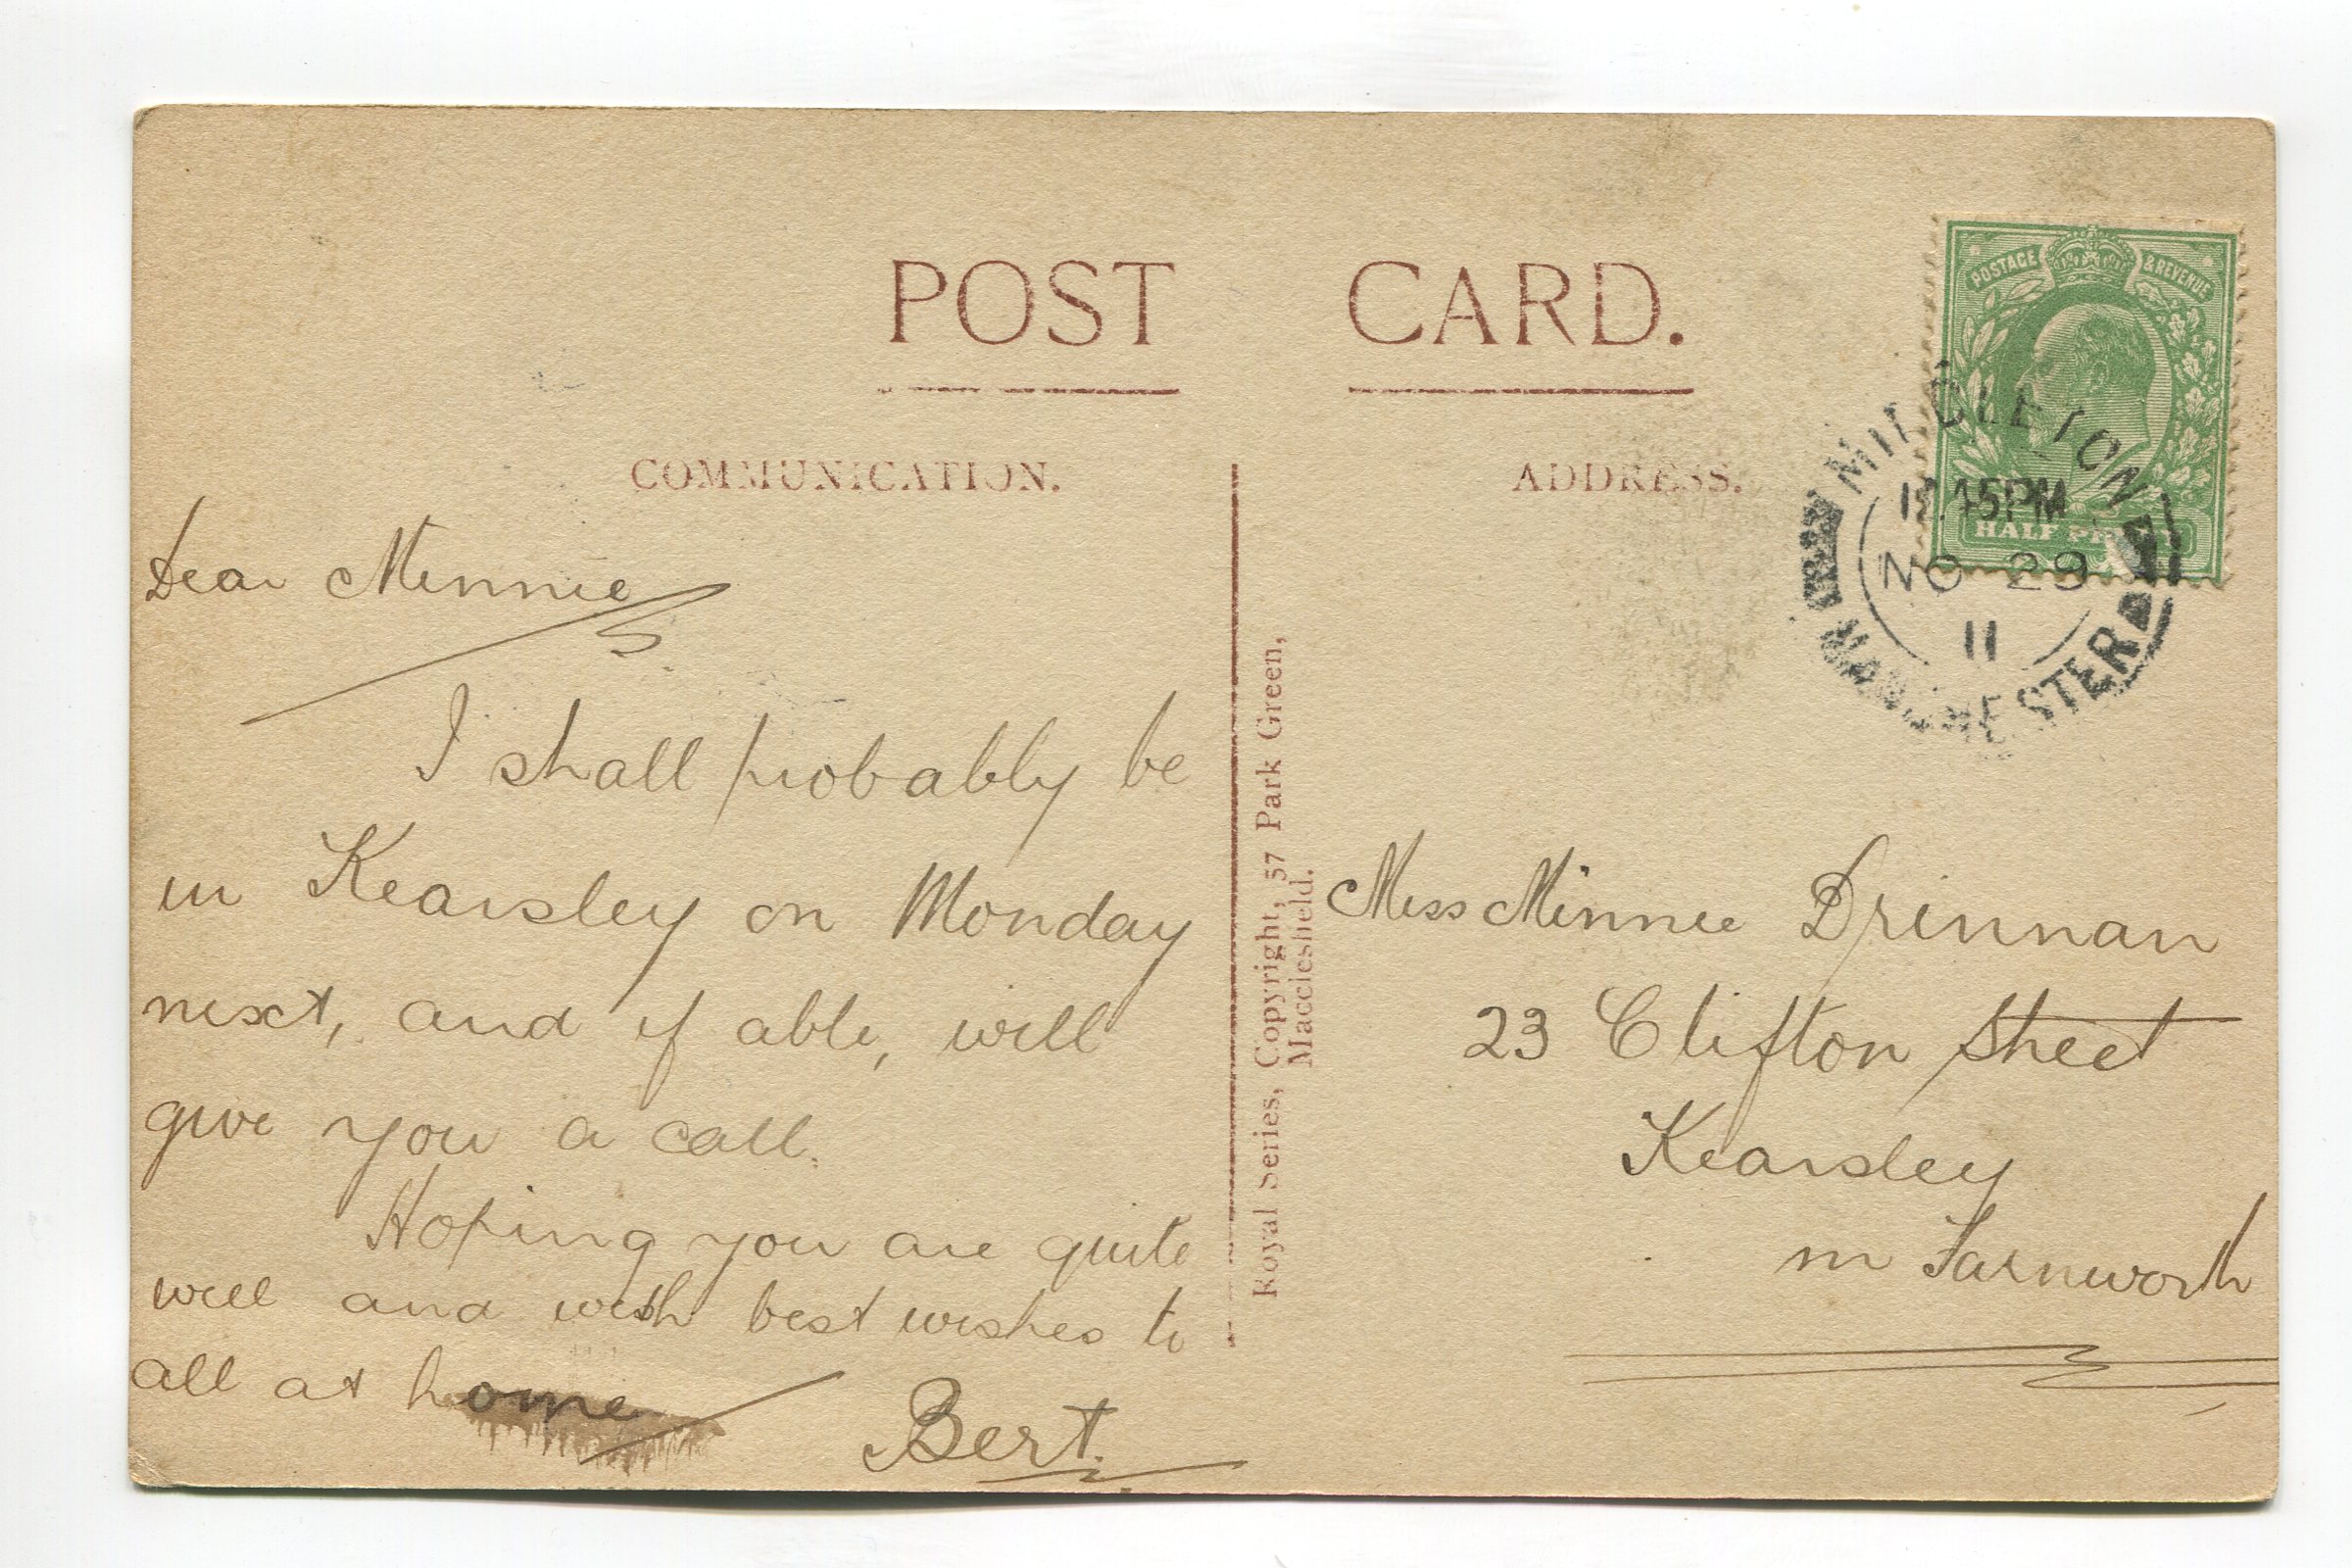 POST CARD.
COMMUNICATION.
ADDRESS.
Dear Minnie
I shall probably be
in Kearsley on Monday
next, and if able, will
give you a call.
Hoping you are quite
well and with best wishes to
all at home
Bert.
Royal Series, Copyright, 57 Park Green,
Macclesfield.
POSTAGE & REVENUE
HALF PENNY
MIDDLETON
45PM
NO 29
11
MANCHESTER
Miss Minnie Drinnan
23 Clifton Street
Kearsley
nr Farnworth